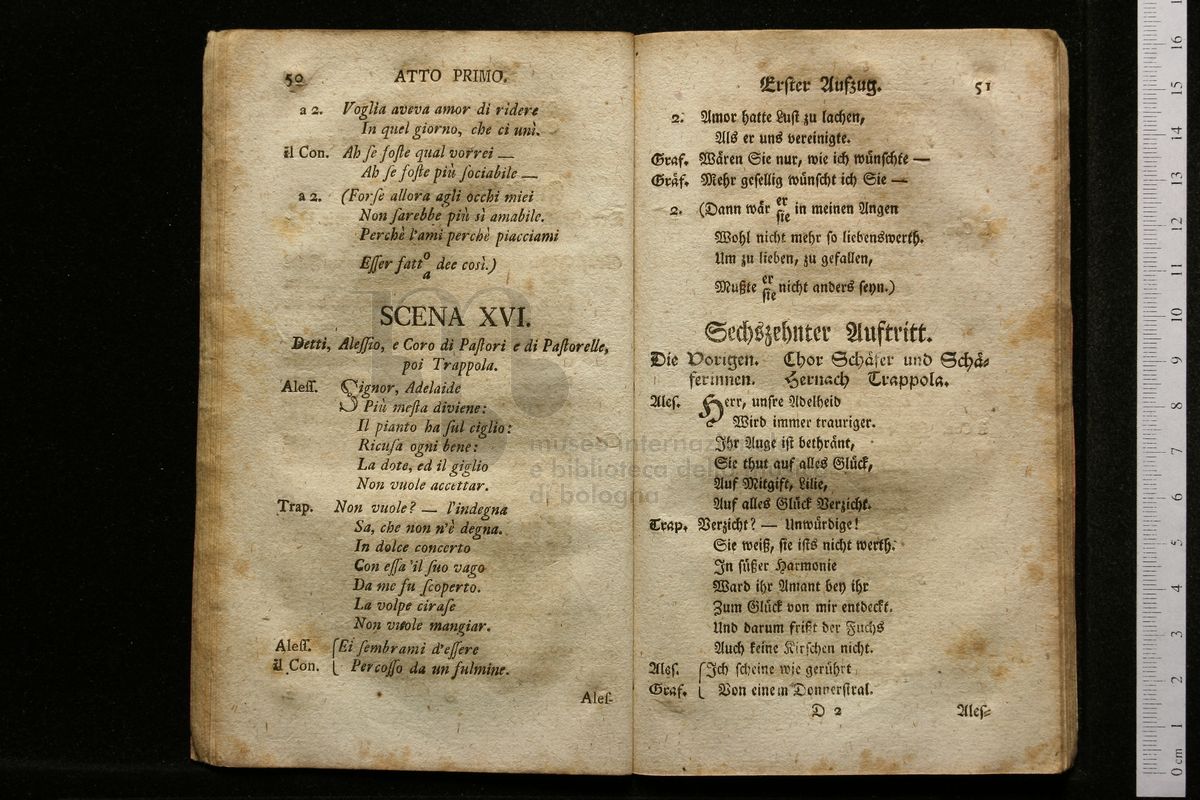 50 ATTO PRIMO.
a 2. Voglia aveva amor di ridere
In quel giorno, che ci unì.
il Con. Ah ſe foſte qual vorrei —
Ah ſe foſte più ſociabile —
a 2. (Forſe allora agli occhi miei
Non ſarebbe più sì amabile.
Perchè l'ami perchè piacciami
Eſſer fatt o
a dee così.)
SCENA XVI.
Detti, Aleſſio, e Coro di Paſtori e di Paſtorelle,
poi Trappola.
Aleſſ. Signor, Adelaide
Più meſta diviene:
Il pianto ha ſul ciglio:
Ricuſa ogni bene:
La dote, ed il giglio
Non vuole accettar.
Trap. Non vuole? — l'indegna
Sa, che non n'è degna.
In dolce concerto
Con eſſa 'il ſuo vago
Da me fu ſcoperto.
La volpe ciraſe
Non vuole mangiar.
Aleſſ. Ei ſembrami d'eſſere
il Con. Percoſſo da un fulmine.
Aleſ-
Erſter Aufzug. 51
2. Amor hatte Luſt zu lachen,
Als er uns vereinigte.
Graf. Wären Sie nur, wie ich wünſchte —
Gräf. Mehr geſellig wünſcht ich Sie —
2. (Dann wär er
ſie in meinen Augen
Wohl nicht mehr ſo liebenswerth.
Um zu lieben, zu gefallen,
Mußte er
ſie nicht anders ſeyn.)
Sechszehnter Auftritt.
Die Vorigen. Chor Schäfer und Schä-
ferinnen. Hernach Trappola.
Aleſ. Herr, unſre Adelheid
Wird immer trauriger.
Ihr Auge iſt bethränt,
Sie thut auf alles Glück,
Auf Mitgift, Lilie,
Auf alles Glück Verzicht.
Trap. Verzicht? — Unwürdige!
Sie weiß, ſie iſts nicht werth.
In ſüßer Harmonie
Ward ihr Amant bey ihr
Zum Glück von mir entdeckt.
Und darum frißt der Fuchs
Auch keine Kirſchen nicht.
Aleſ. Ich ſcheine wie gerührt
Graf. Von einem Donnerſtral.
D 2 Aleſ-
museo internaz
e biblioteca della
di bologna
0 cm 1 2 3 4 5 6 7 8 9 10 11 12 13 14 15 16